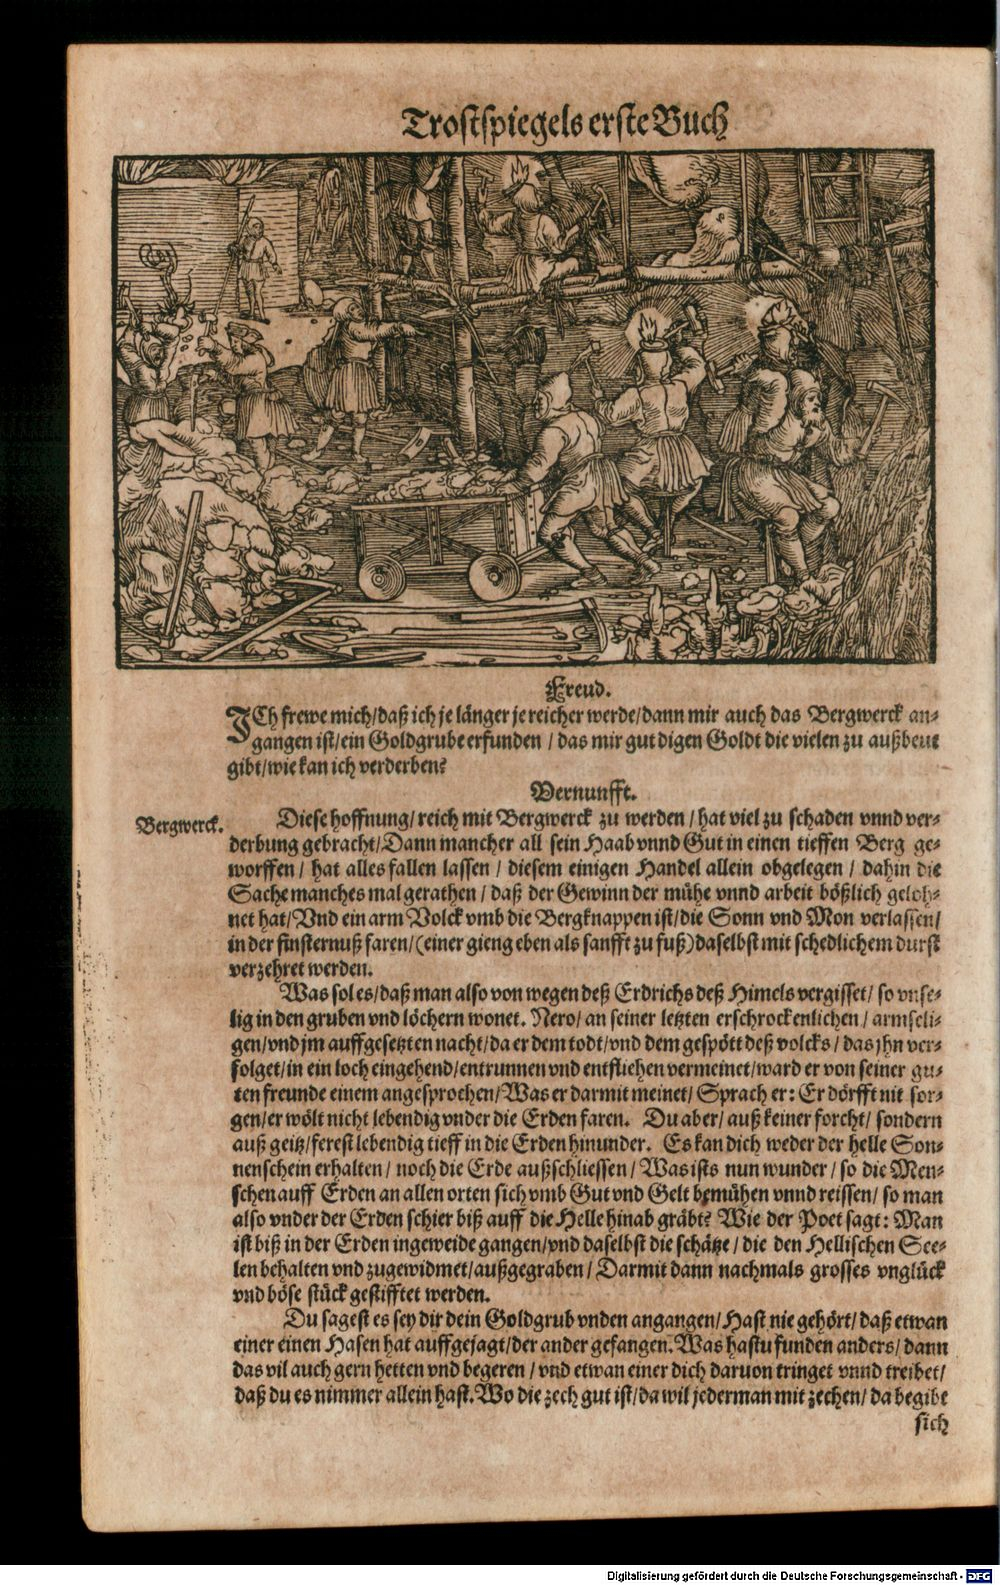 Trostspiegels erste Buch
Freud.
ICh frewe mich/daß ich je länger je reicher werde/dann mir auch das Bergwerck an-
gangen ist/ein Goldgrube erfunden / das mir gut digen Goldt die vielen zu außbeut
gibt/wie kan ich verderben?
Vernunfft.
Bergwerck.
Diese hoffnung/reich mit Bergwerck zu werden / hat viel zu schaden vnnd ver-
derbung gebracht/Dann mancher all sein Haab vnnd Gut in einen tieffen Berg ge-
worffen / hat alles fallen lassen / diesem einigen Handel allein obgelegen / dahin die
Sache manches mal gerathen / daß der Gewinn der mühe vnnd arbeit bößlich geloh-
net hat/Vnd ein arm Volck vmb die Bergknappen ist/die Sonn vnd Mon verlassen/
in der finsternuß faren/(einer gieng eben als sanfft zu fuß)daselbst mit schedlichem durst
verzehret werden.
Was sol es/daß man also von wegen deß Erdrichs deß Himels vergisset/ so vnse-
lig in den gruben vnd löchern wonet. Nero/an seiner letzten erschrockenlichen / armseli-
gen/vnd jm auffgesetzten nacht/da er dem todt/vnd dem gespött deß volcks / das jhn ver-
folget/in ein loch eingehend/entrunnen vnd entfliehen vermeinet/ward er von seiner gu-
ten freunde einem angesprochen/Was er darmit meinet/ Sprach er: Er dörfft nit sor-
gen/er wölt nicht lebendig vnder die Erden faren. Du aber/ auß keiner forcht/ sondern
auß geitz/ferest lebendig tieff in die Erden hinunder. Es kan dich weder der helle Son-
nenschein erhalten / noch die Erde außschliessen / Was ists nun wunder / so die Men-
schen auff Erden an allen orten sich vmb Gut vnd Gelt bemühen vnnd reissen/ so man
also vnder der Erden schier biß auff die Helle hinab gräbt? Wie der Poet sagt: Man
ist biß in der Erden ingeweide gangen/vnd daselbst die schätze / die den Hellischen See-
len behalten vnd zugewidmet/außgegraben / Darmit dann nachmals grosses vnglück
vnd böse stück gestifftet werden.
Du sagest es sey dir dein Goldgrub vnden angangen/Hast nie gehört/daß etwan
einer einen Hasen hat auffgejagt/der ander gefangen. Was hastu funden anders/ dann
das vil auch gern hetten vnd begeren / vnd etwan einer dich daruon tringet vnnd treibet/
daß du es nimmer allein hast. Wo die zech gut ist/da wil jederman mit zechen/ da begibt
sich
Digitalisierung gefördert durch die Deutsche Forschungsgemeinschaft - DFG